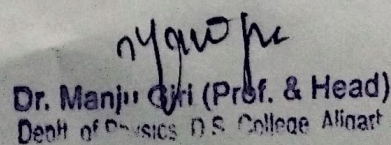 Dr. Manju Giri (Prof. & Head)
Deptt of Physics D.S. College Aligarh